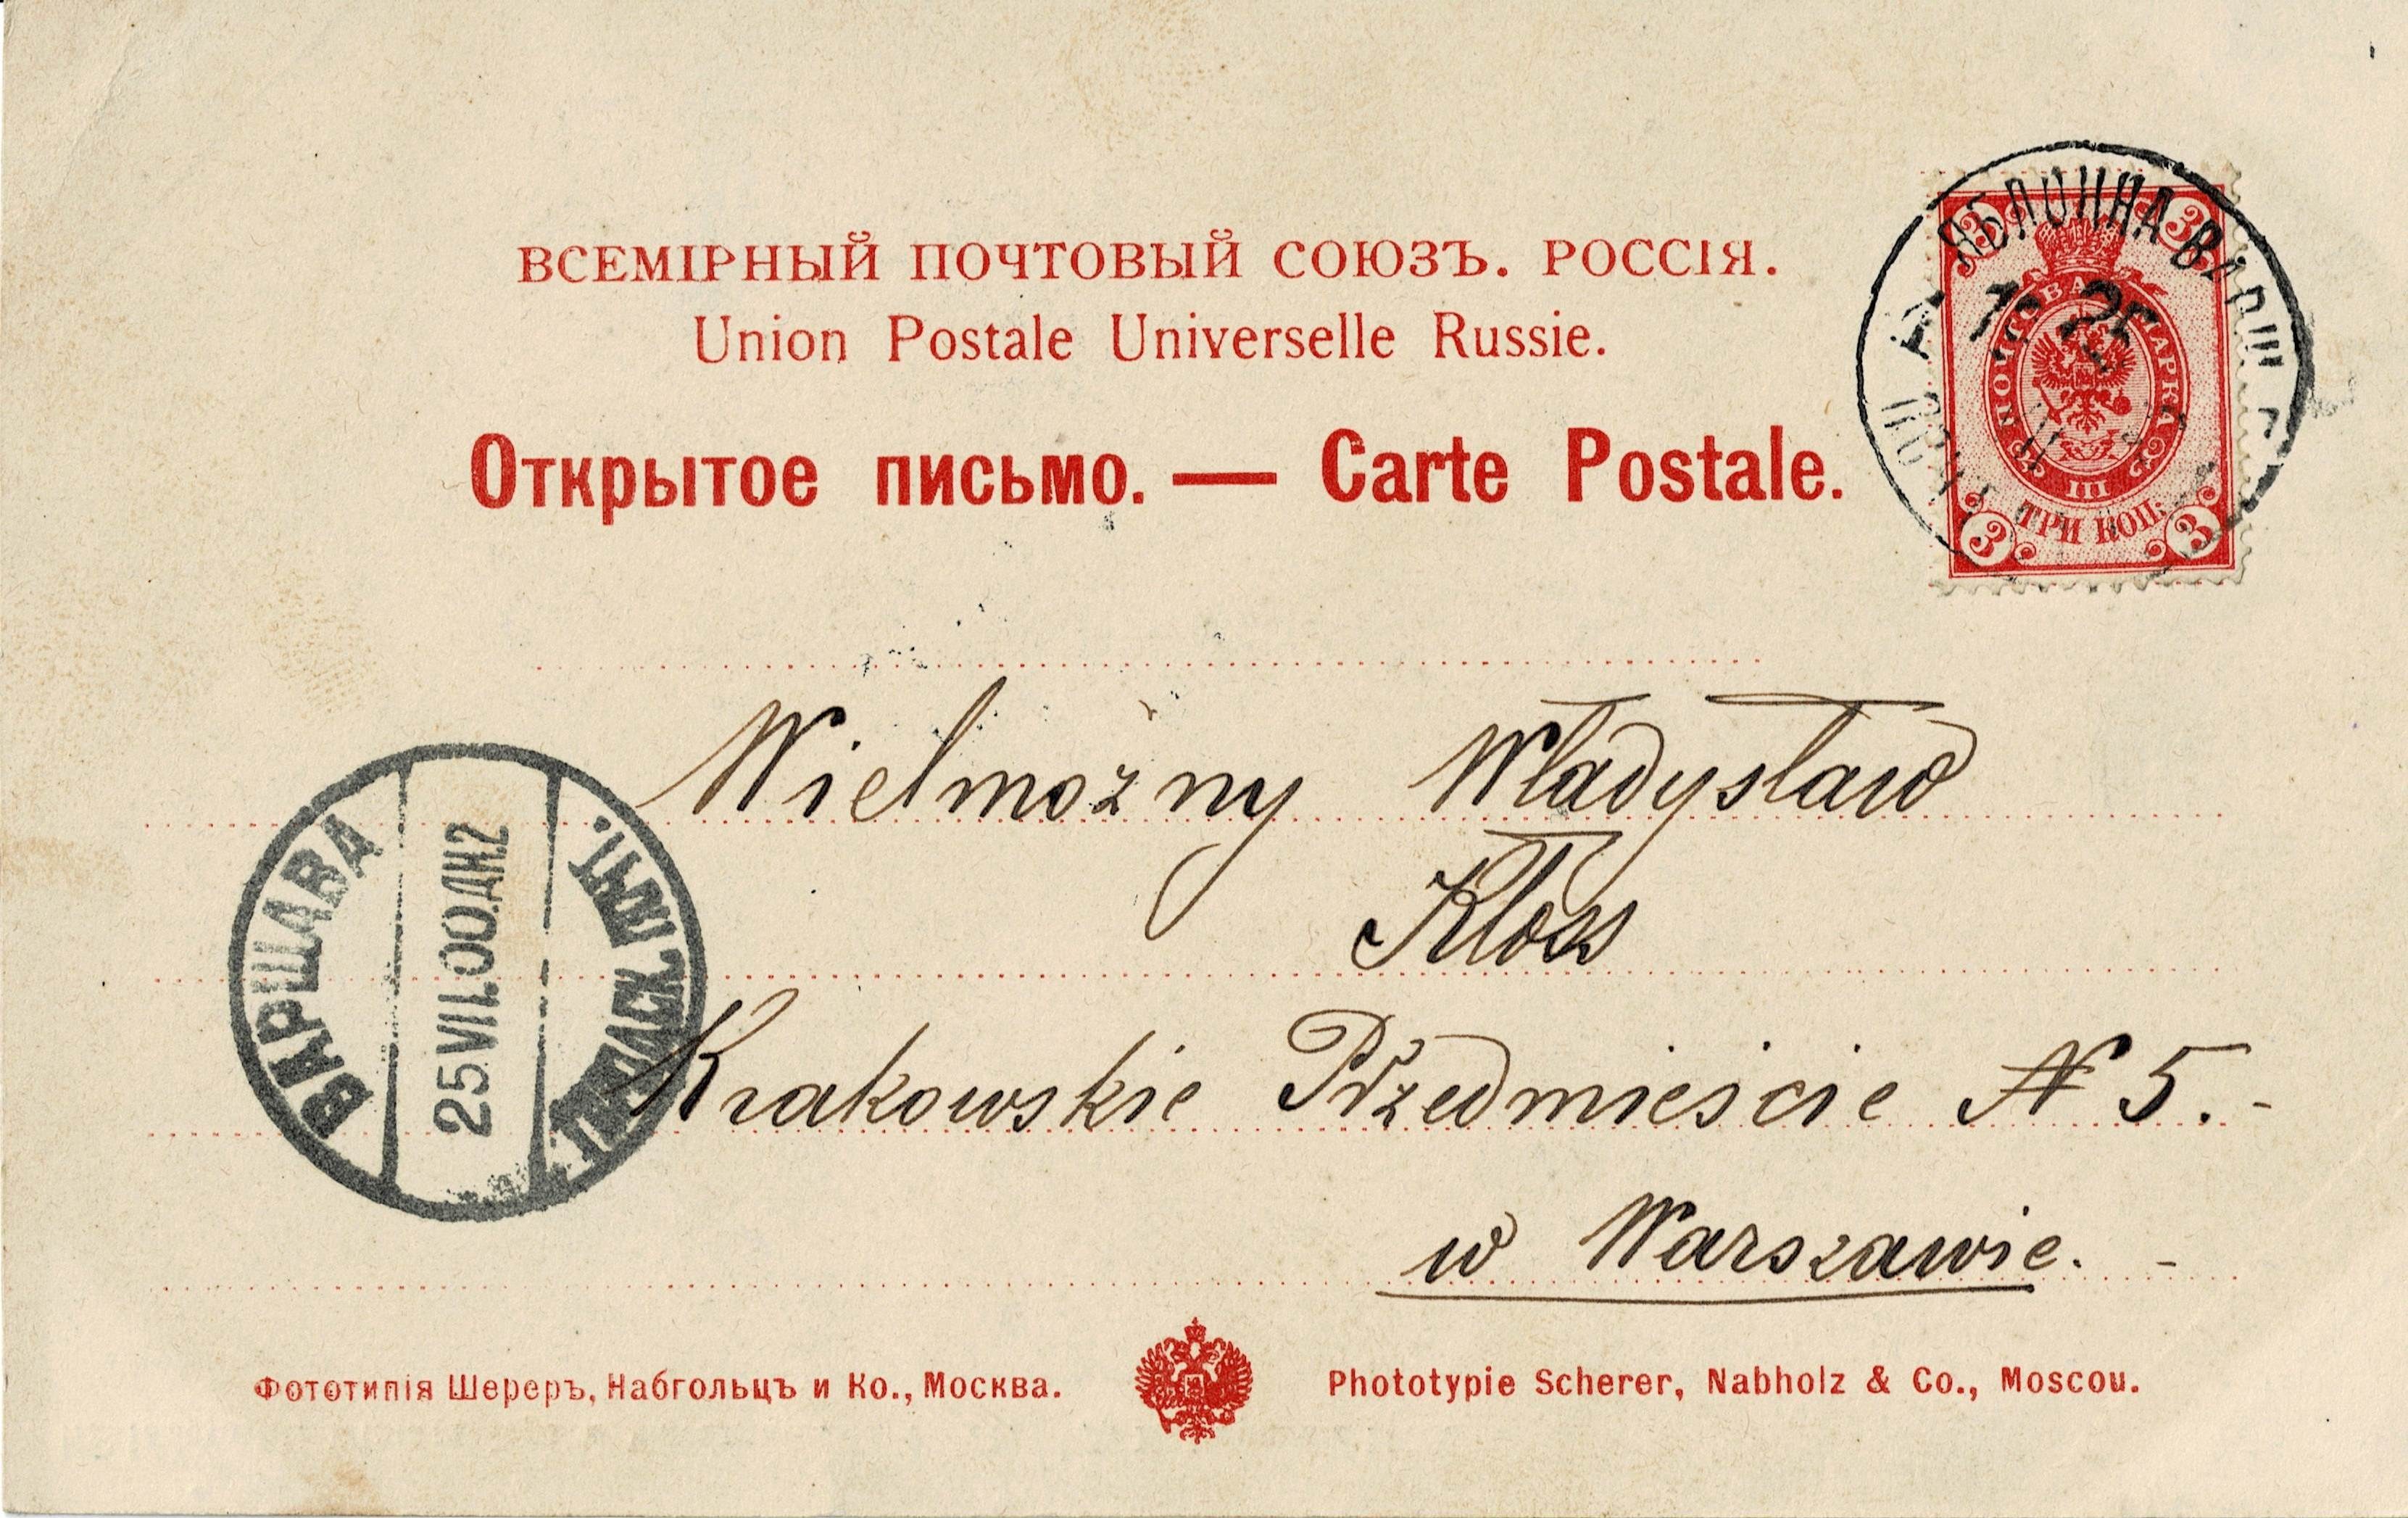 ВСЕМІРНЫЙ ПОЧТОВЫЙ СОЮЗЪ. РОССІЯ.
Union Postale Universelle Russie.
Открытое письмо. — Carte Postale.
ЯБЛОННА ВАРШ. Г.
25
3 3
ПОЧТОВАЯ МАРКА
III
ТРИ КОП.
3 3
Wielmożny Władysław
Kloss
Krakowskie Przedmieście № 5.-
w Warszawie. -
ВАРШАВА
25.VII.00.ДН.2
Фототипія Шереръ, Набгольцъ и Ко., Москва.
Phototypie Scherer, Nabholz & Co., Moscou.